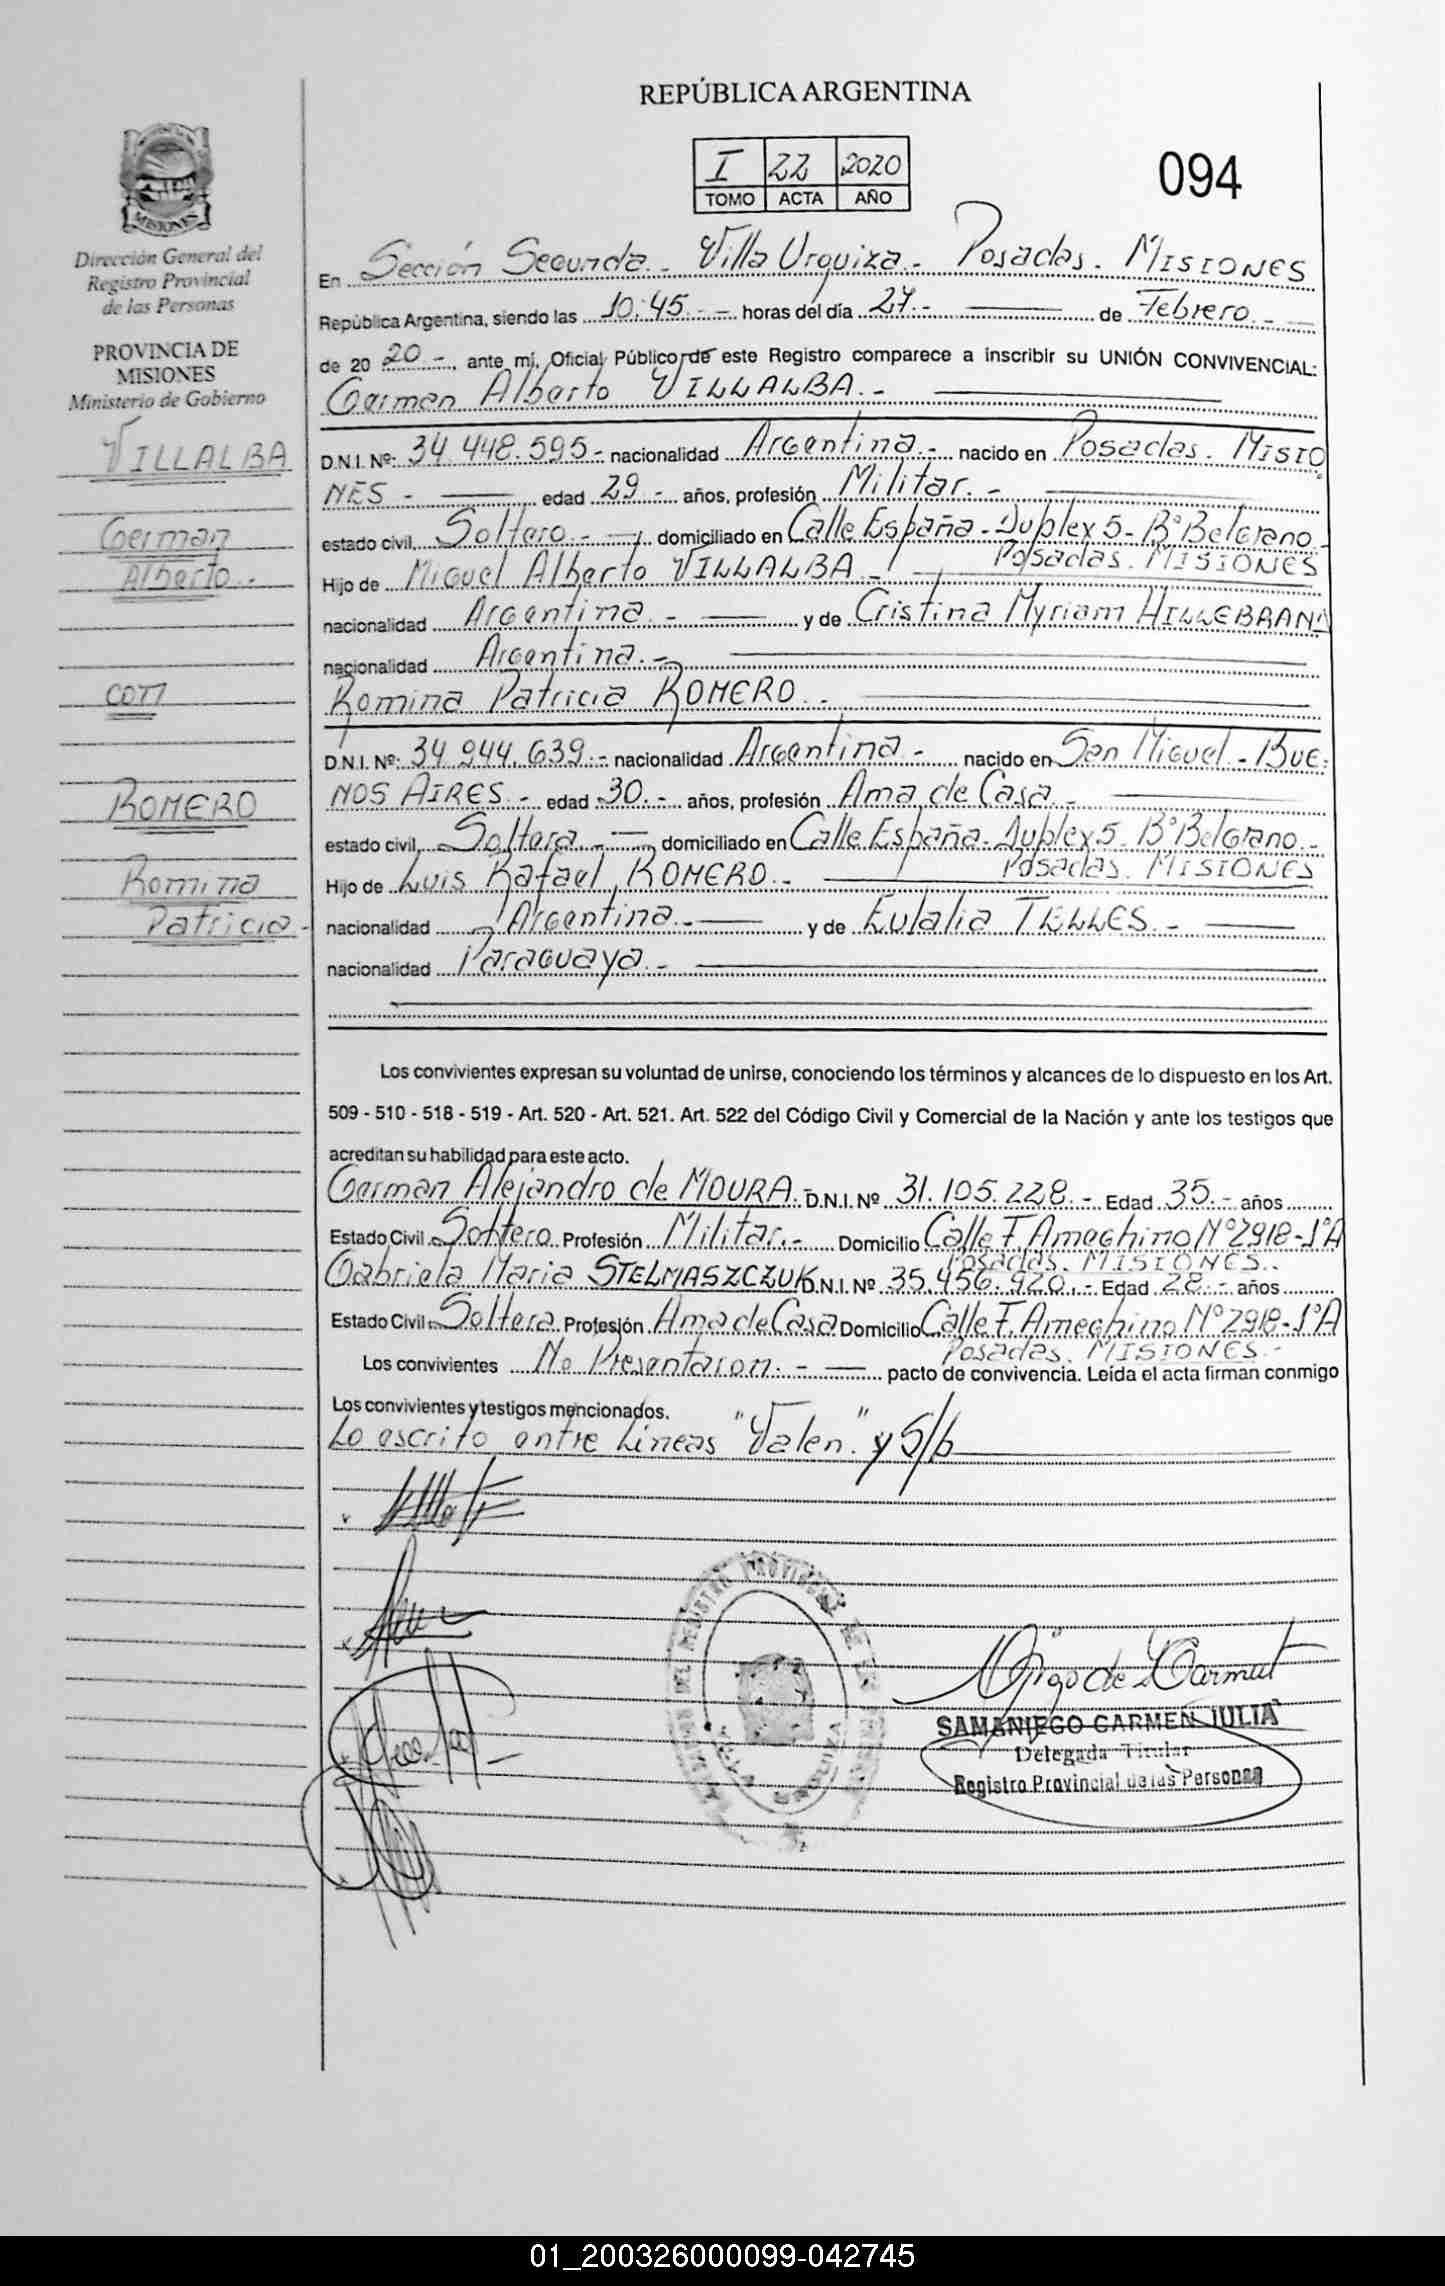 REPÚBLICA ARGENTINA
I 22 2020
TOMO ACTA AÑO
094
MISIONES
Dirección General del
Registro Provincial
de las Personas
PROVINCIA DE
MISIONES
Ministerio de Gobierno
VILLALBA
German
Alberto.-
con
ROMERO
Romina
Patricia.-
En Sección Segunda.- Villa Urquiza.- Posadas. MISIONES
República Argentina, siendo las 10:45.- horas del día 27.- de Febrero.-
de 20 20.-, ante mí, Oficial Público de este Registro comparece a inscribir su UNIÓN CONVIVENCIAL:
German Alberto VILLALBA.-
D.N.I. Nº: 34.448.595.- nacionalidad Argentina.- nacido en Posadas. MISIO
NES.- edad 29.- años, profesión Militar.-
estado civil Soltero.- domiciliado en Calle España-Duplex 5-Bº Belgrano.-
Posadas. MISIONES
Hijo de Miguel Alberto VILLALBA.-
nacionalidad Argentina.- y de Cristina Myriam HILLEBRAND
nacionalidad Argentina.-
Romina Patricia ROMERO.-
D.N.I. Nº: 34.944.639.- nacionalidad Argentina.- nacido en San Miguel.- BUE-
NOS AIRES.- edad 30.- años, profesión Ama de Casa.-
estado civil Soltera.- domiciliado en Calle España-Duplex 5-Bº Belgrano.-
Posadas. MISIONES
Hijo de Luis Rafael ROMERO.-
nacionalidad Argentina.- y de Eulalia TELLES.-
nacionalidad Paraguaya.-
Los convivientes expresan su voluntad de unirse, conociendo los términos y alcances de lo dispuesto en los Art.
509 - 510 - 518 - 519 - Art. 520 - Art. 521. Art. 522 del Código Civil y Comercial de la Nación y ante los testigos que
acreditan su habilidad para este acto.
German Alejandro de MOURA.- D.N.I. Nº 31.105.228.- Edad 35.- años
Estado Civil Soltero Profesión Militar.- Domicilio Calle F. Ameghino Nº2918-1ºA
Posadas. MISIONES.-
Gabriela Maria STELMASZCZUK D.N.I. Nº 35.456.920.- Edad 28.- años
Estado Civil Soltera Profesión Ama de Casa Domicilio Calle F. Ameghino Nº2918-1ºA
Posadas. MISIONES.-
Los convivientes No Presentaron.- pacto de convivencia. Leída el acta firman conmigo
Los convivientes y testigos mencionados.
Lo escrito entre Lineas "Valen." y S/b
DEL REGISTRO PROVINCIAL DE LAS PERSONAS
VILLA URQUIZA
SAMANIEGO CARMEN JULIA
Delegada Titular
Registro Provincial de las Personas
01_200326000099-042745